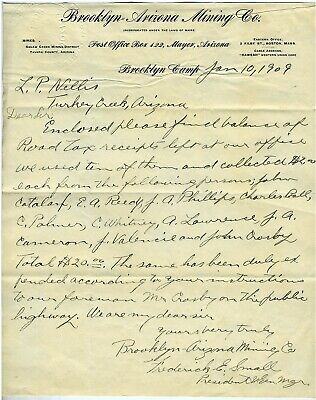 Brooklyn-Arizona Mining Co.
INCORPORATED UNDER THE LAWS OF MAINE
MINES
TURKEY CREEK MINING DISTRICT
YAVAPAI COUNTY, ARIZONA
Post Office Box 122, Mayer, Arizona
EASTERN OFFICE,
BOSTON, MASS.
CABLE ADDRESS,
Brooklyn Camp Jan 10, 1909
L. P. Nellis
Turkey Creek, Arizona
Dear Sir
Enclosed please find balance of
Road Tax receipts left at our office
we used ten of them and collected $2.00
each from the following persons, John
Catalan, E. A. Reed, J. A. Phillips, Charles
C. Palmer, C. Whitney, A. Lawrence, J. A.
Cameron, J. Valencie and John Crosby
Total $20.00. The same has been duly ex
pended according to your instructions
to our foreman Mr Crosby on the public
highway. We are my dear sir
Yours very truly
Brooklyn-Arizona Mining Co
Frederick E. Small
President & Gen Mgr.